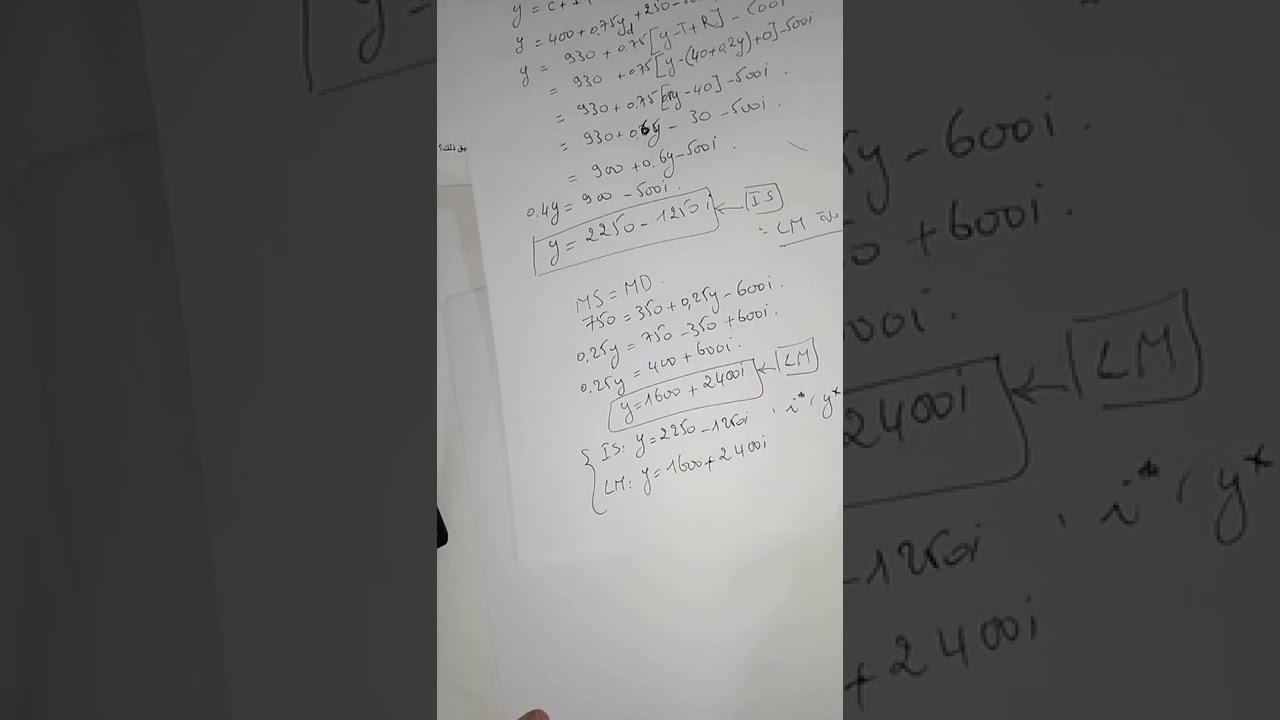 y = 400 + 0.75yd + 250 - 500i
y = 930 + 0.75[y-T+R] - 500i
= 930 + 0.75[y-(40+0.2y)+0]-500i
= 930 + 0.75[0.8y - 40] - 500i .
= 930 + 0.6y - 30 - 500i .
= 900 + 0.6y - 500i .
0.4y = 900 - 500i .
y = 2250 - 1250i ← IS
LM
MS = MD .
750 = 350 + 0,25y - 600i .
0,25y = 750 - 350 + 600i .
0.25y = 400 + 600i .
y = 1600 + 2400i ← LM
IS: y = 2250 - 1250i , i* , y*
LM: y = 1600 + 2400i